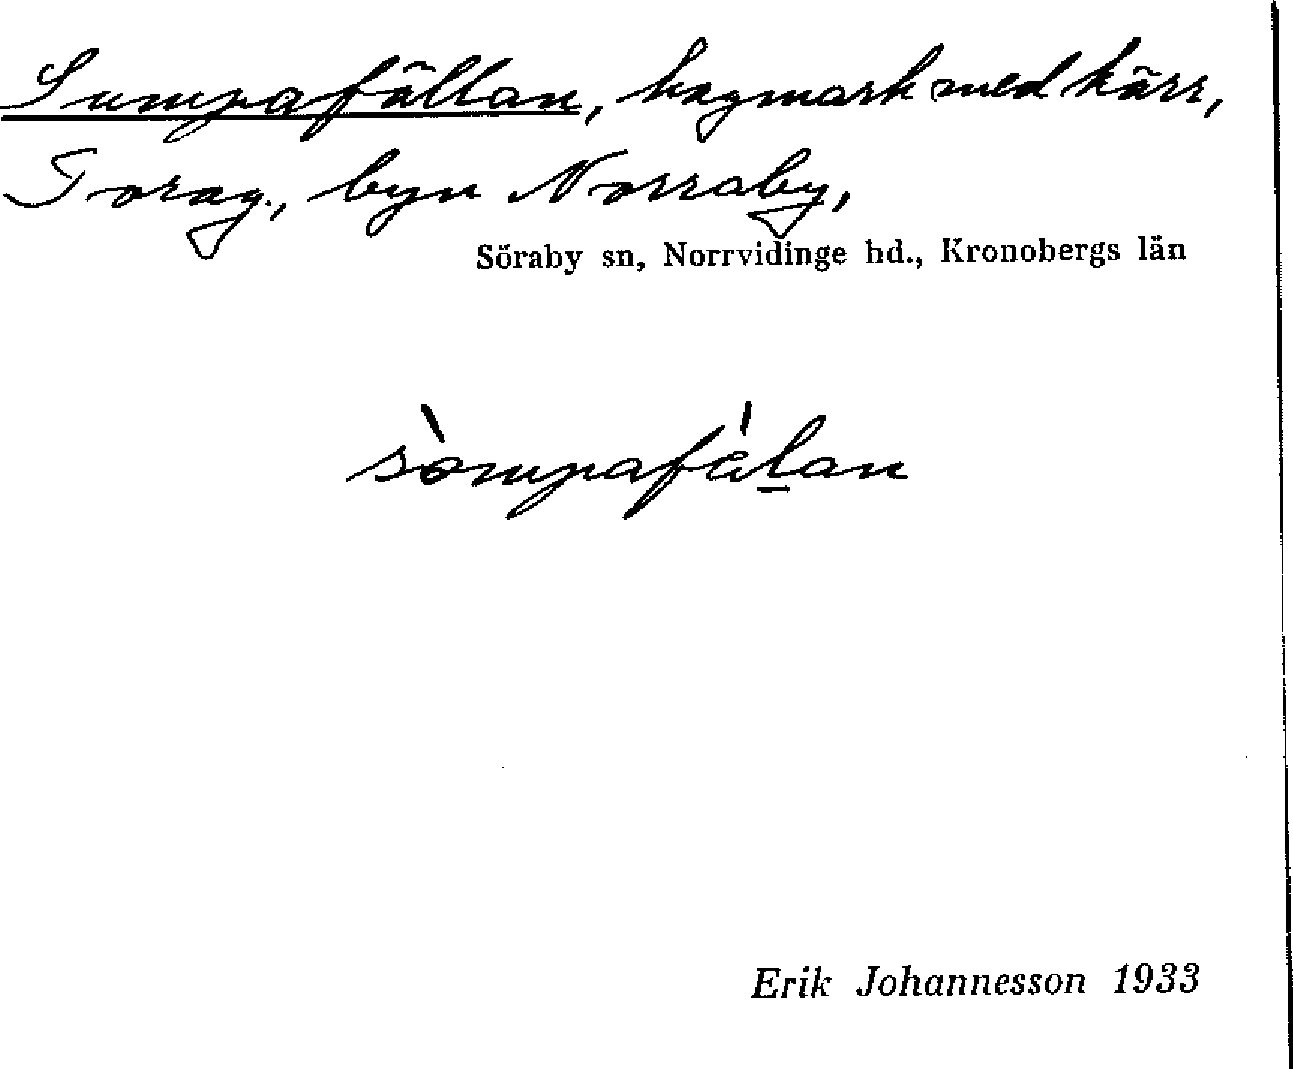 Sumpafällan, hagmark med kärr,
Torag., byn Norraby,
Söraby sn, Norrvidinge hd., Kronobergs län
sòmpafàlan
Erik Johannesson 1933